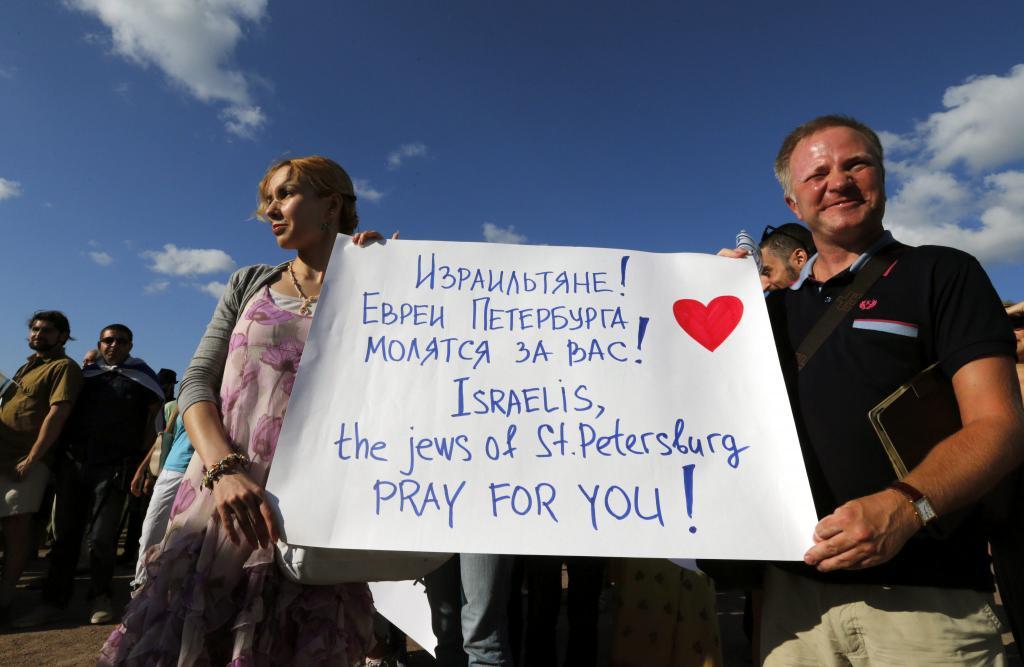 Израильтяне!
Евреи Петербурга
молятся за вас!
Israelis,
the jews of St.Petersburg
PRAY FOR YOU!